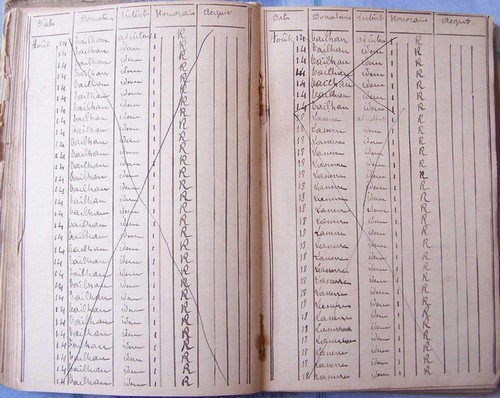 Date Donateurs Intent Honoraires Acquit
Août 14 Cailhau ad intent 1 R
14 Cailhau idem 1 R
14 Cailhau idem 1 R
14 Cailhau idem 1 R
14 Cailhau idem 1 R
14 Cailhau idem 1 R
14 Cailhau idem 1 R
14 Cailhau idem 1 R
14 Cailhau idem 1 R
14 Cailhau idem 1 R
14 Cailhau idem 1 R
14 Cailhau idem 1 R
14 Cailhau idem 1 R
14 Cailhau idem 1 R
14 Cailhau idem 1 R
14 Cailhau idem 1 R
14 Cailhau idem 1 R
14 Cailhau idem 1 R
14 Cailhau idem 1 R
14 Cailhau idem 1 R
14 Cailhau idem 1 R
14 Cailhau idem 1 R
14 Cailhau idem 1 R
14 Cailhau idem 1 R
14 Cailhau idem 1 R
14 Cailhau idem 1 R
14 Cailhau idem 1 R
14 Cailhau idem 1 R
Date Donateurs Intent Honoraires Acquit
Août 14 Cailhau ad intent 1 R
14 Cailhau idem 1 R
14 Cailhau idem 1 R
14 Cailhau idem 1 R
14 Cailhau idem 1 R
14 Cailhau idem 1 R
14 Cailhau idem 1 R
18 Laserre ad intent 1 R
18 Laserre idem 1 R
18 Laserre idem 1 R
18 Laserre idem 1 R
18 Laserre idem 1 R
18 Laserre idem 1 R
18 Laserre idem 1 R
18 Laserre idem 1 R
18 Laserre idem 1 R
18 Laserre idem 1 R
18 Laserre idem 1 R
18 Laserre idem 1 R
18 Laserre idem 1 R
18 Laserre idem 1 R
18 Laserre idem 1 R
18 Laserre idem 1 R
18 Laserre idem 1 R
18 Laserre idem 1 R
18 Laserre idem 1 R
18 Laserre idem 1 R
18 Laserre idem 1 R